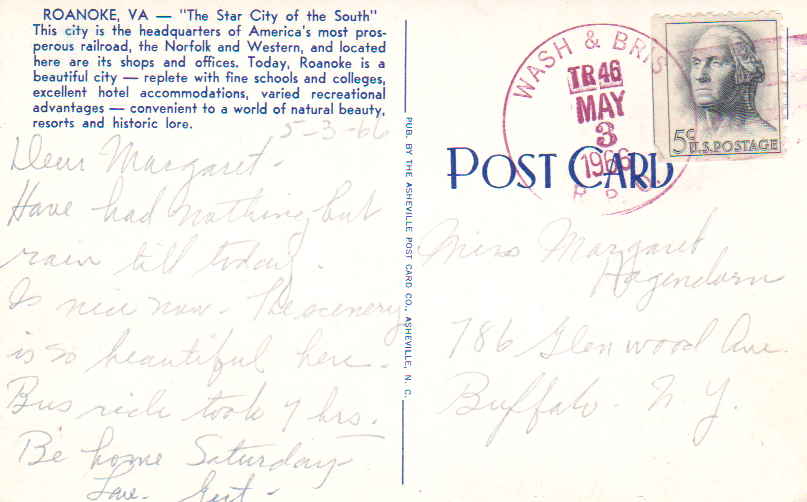 ROANOKE, VA — "The Star City of the South"
This city is the headquarters of America's most pros-
perous railroad, the Norfolk and Western, and located
here are its shops and offices. Today, Roanoke is a
beautiful city — replete with fine schools and colleges,
excellent hotel accommodations, varied recreational
advantages — convenient to a world of natural beauty,
resorts and historic lore.
5-3-66
Dear Margaret -
Have had nothing but
rain till today.
Is nice now. The scenery
is so beautiful here.
Bus ride took 9 hrs.
Be home Saturday
Love - Gert -
PUB. BY THE ASHEVILLE POST CARD CO., ASHEVILLE, N. C.
WASH & BRIS
TR 46
MAY
3
1966
R. P. O.
5¢ U.S. POSTAGE
POST CARD
Miss Margaret
Hagendorn
786 Glenwood Ave.
Buffalo - N. Y.